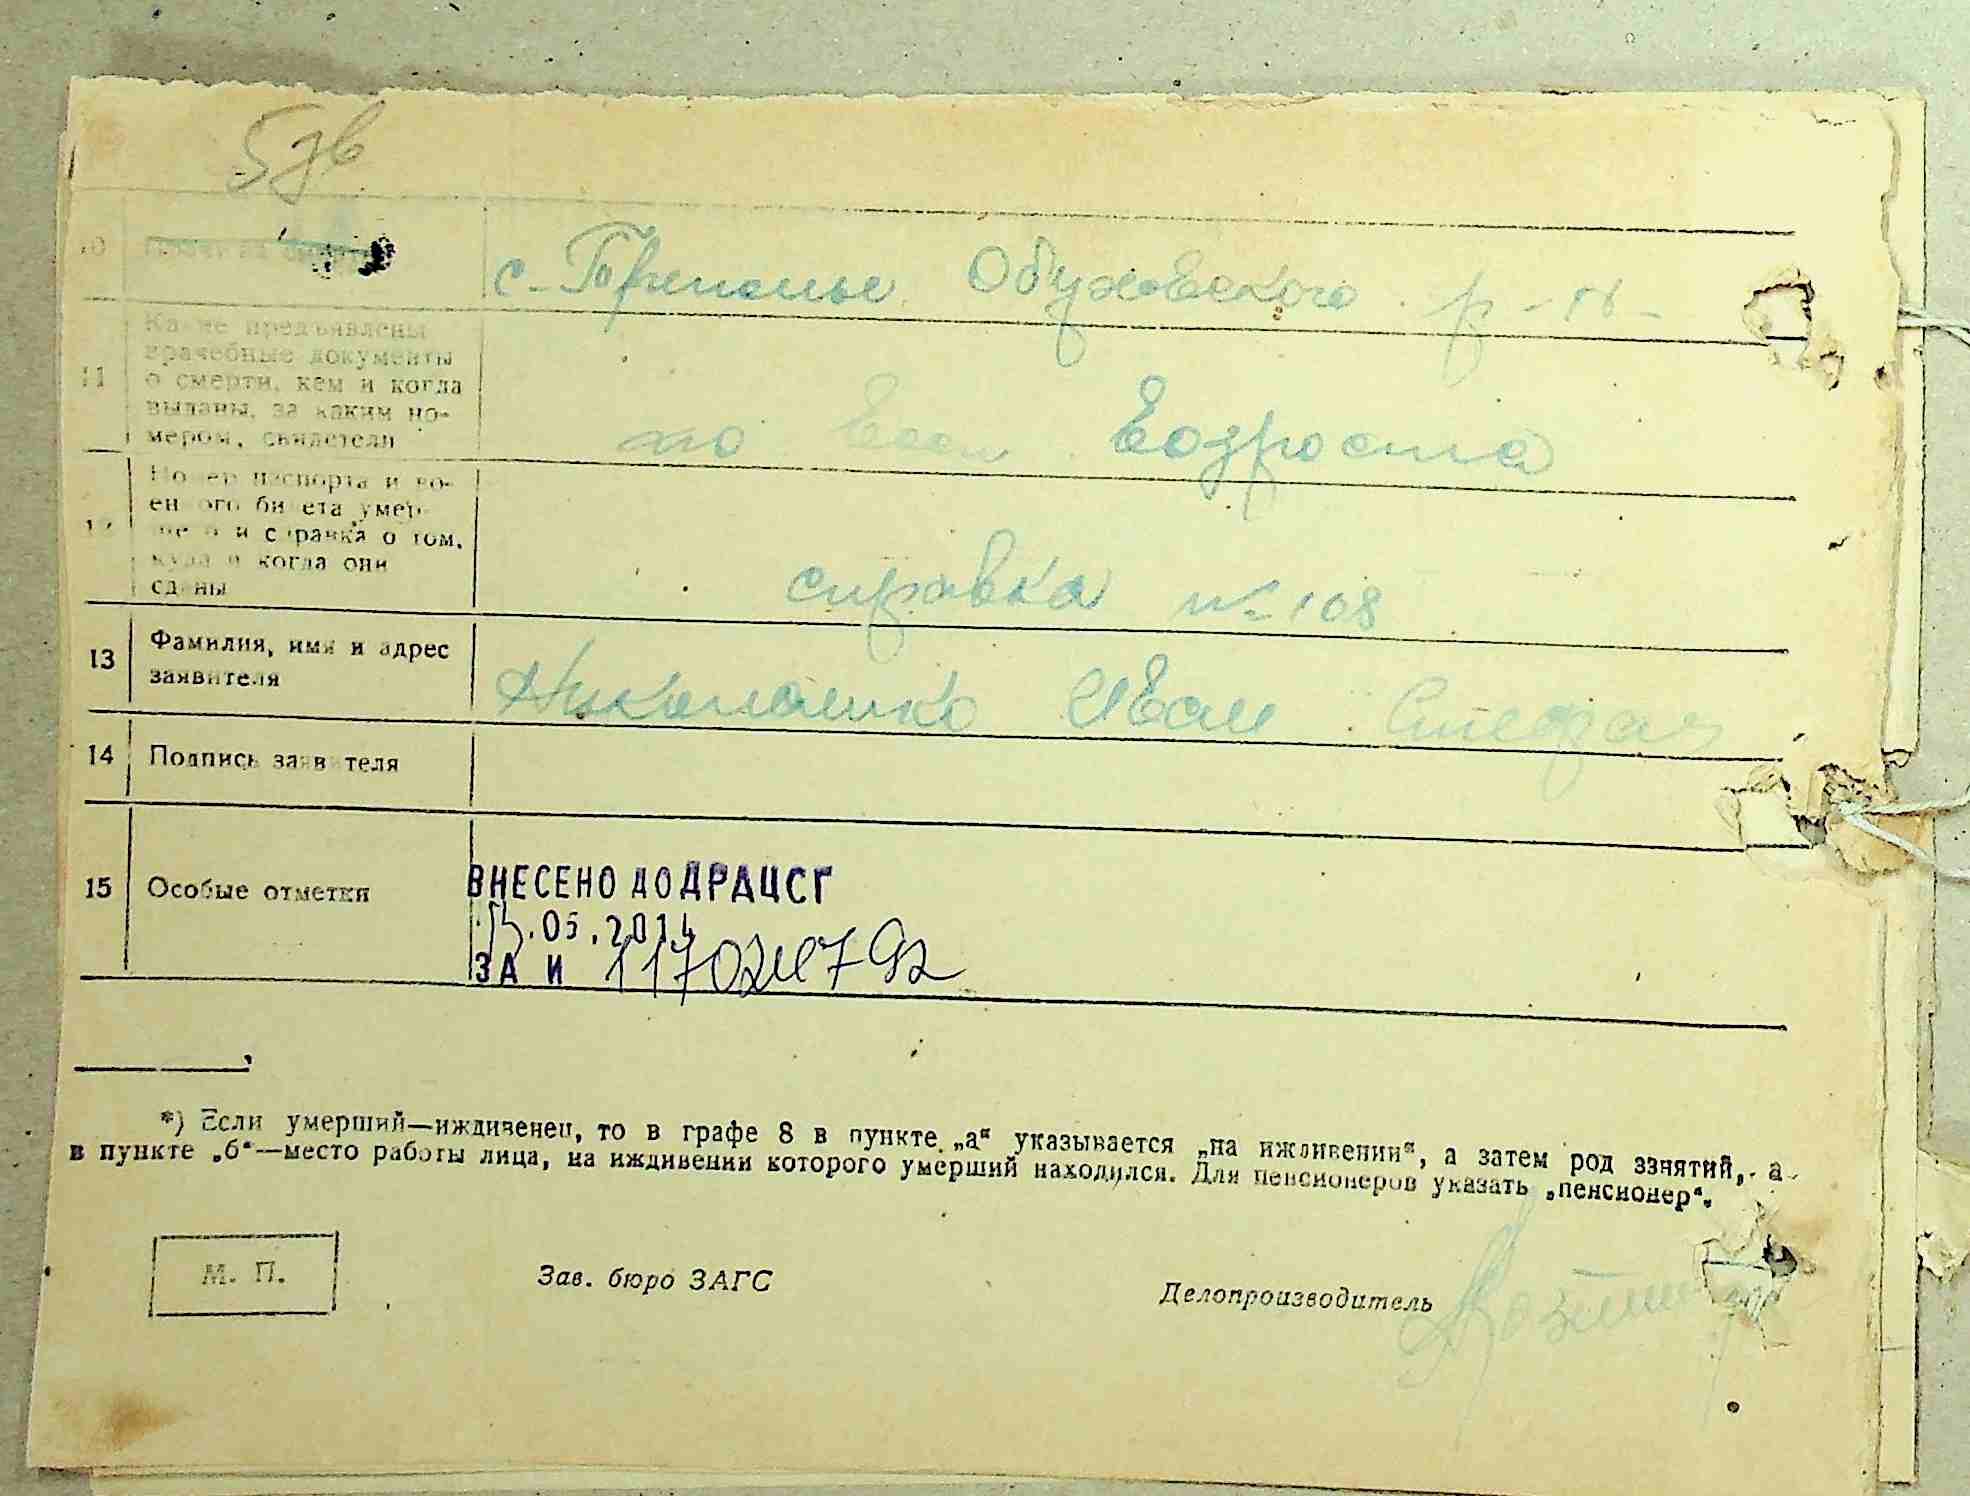 57в
10
с. Обуховского р-н
11 Какие предъявлены
врачебные документы
о смерти, кем и когда
выданы, за каким но-
мером, свидетели
по возроста
12 Номер паспорта и во-
енного билета умер-
шего и справка о том,
куда и когда они
сданы
справка № 108
13 Фамилия, имя и адрес
заявителя
Иван Стефан
14 Подпись заявителя
15 Особые отметки
ВНЕСЕНО ДО ДРАЦСГ
.05.2014
ЗА И
*) Если умерший—иждивенец, то в графе 8 в пункте „а“ указывается „на иждивении“, а затем род занятий, а
в пункте „б“—место работы лица, на иждивении которого умерший находился. Для пенсионеров указать „пенсионер“.
М. П. Зав. бюро ЗАГС Делопроизводитель